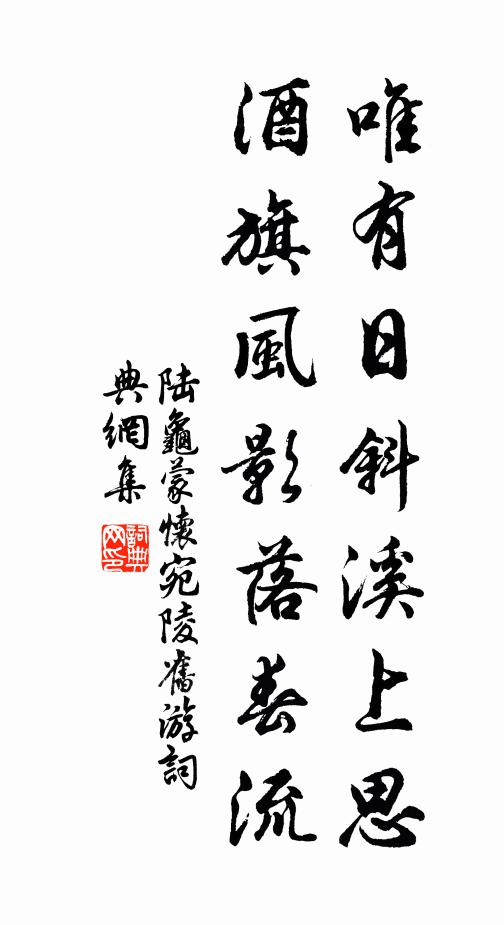 唯有日斜溪上思
酒旗風影落春流
陸龜蒙懷宛陵舊游詞
典網集
詞典
网印